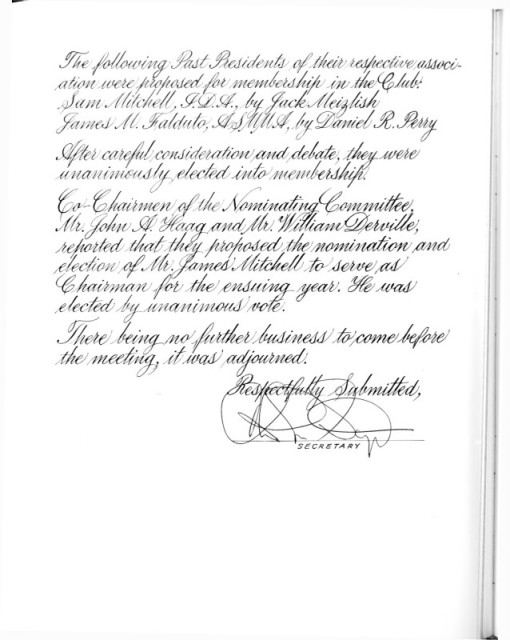 The following Past Presidents of their respective associ-
ation were proposed for membership in the Club:
Sam Mitchell, F.D.A., by Jack Meizlish
James M. Faldulo, A.S.M.M.A, by Daniel R. Perry
After careful consideration and debate, they were
unanimously elected into membership.
Co-Chairmen of the Nominating Committee,
Mr. John A. Haag and Mr. William Derville,
reported that they proposed the nomination and
election of Mr. James Mitchell to serve as
Chairman for the ensuing year. He was
elected by unanimous vote.
There being no further business to come before
the meeting, it was adjourned.
Respectfully Submitted,
SECRETARY